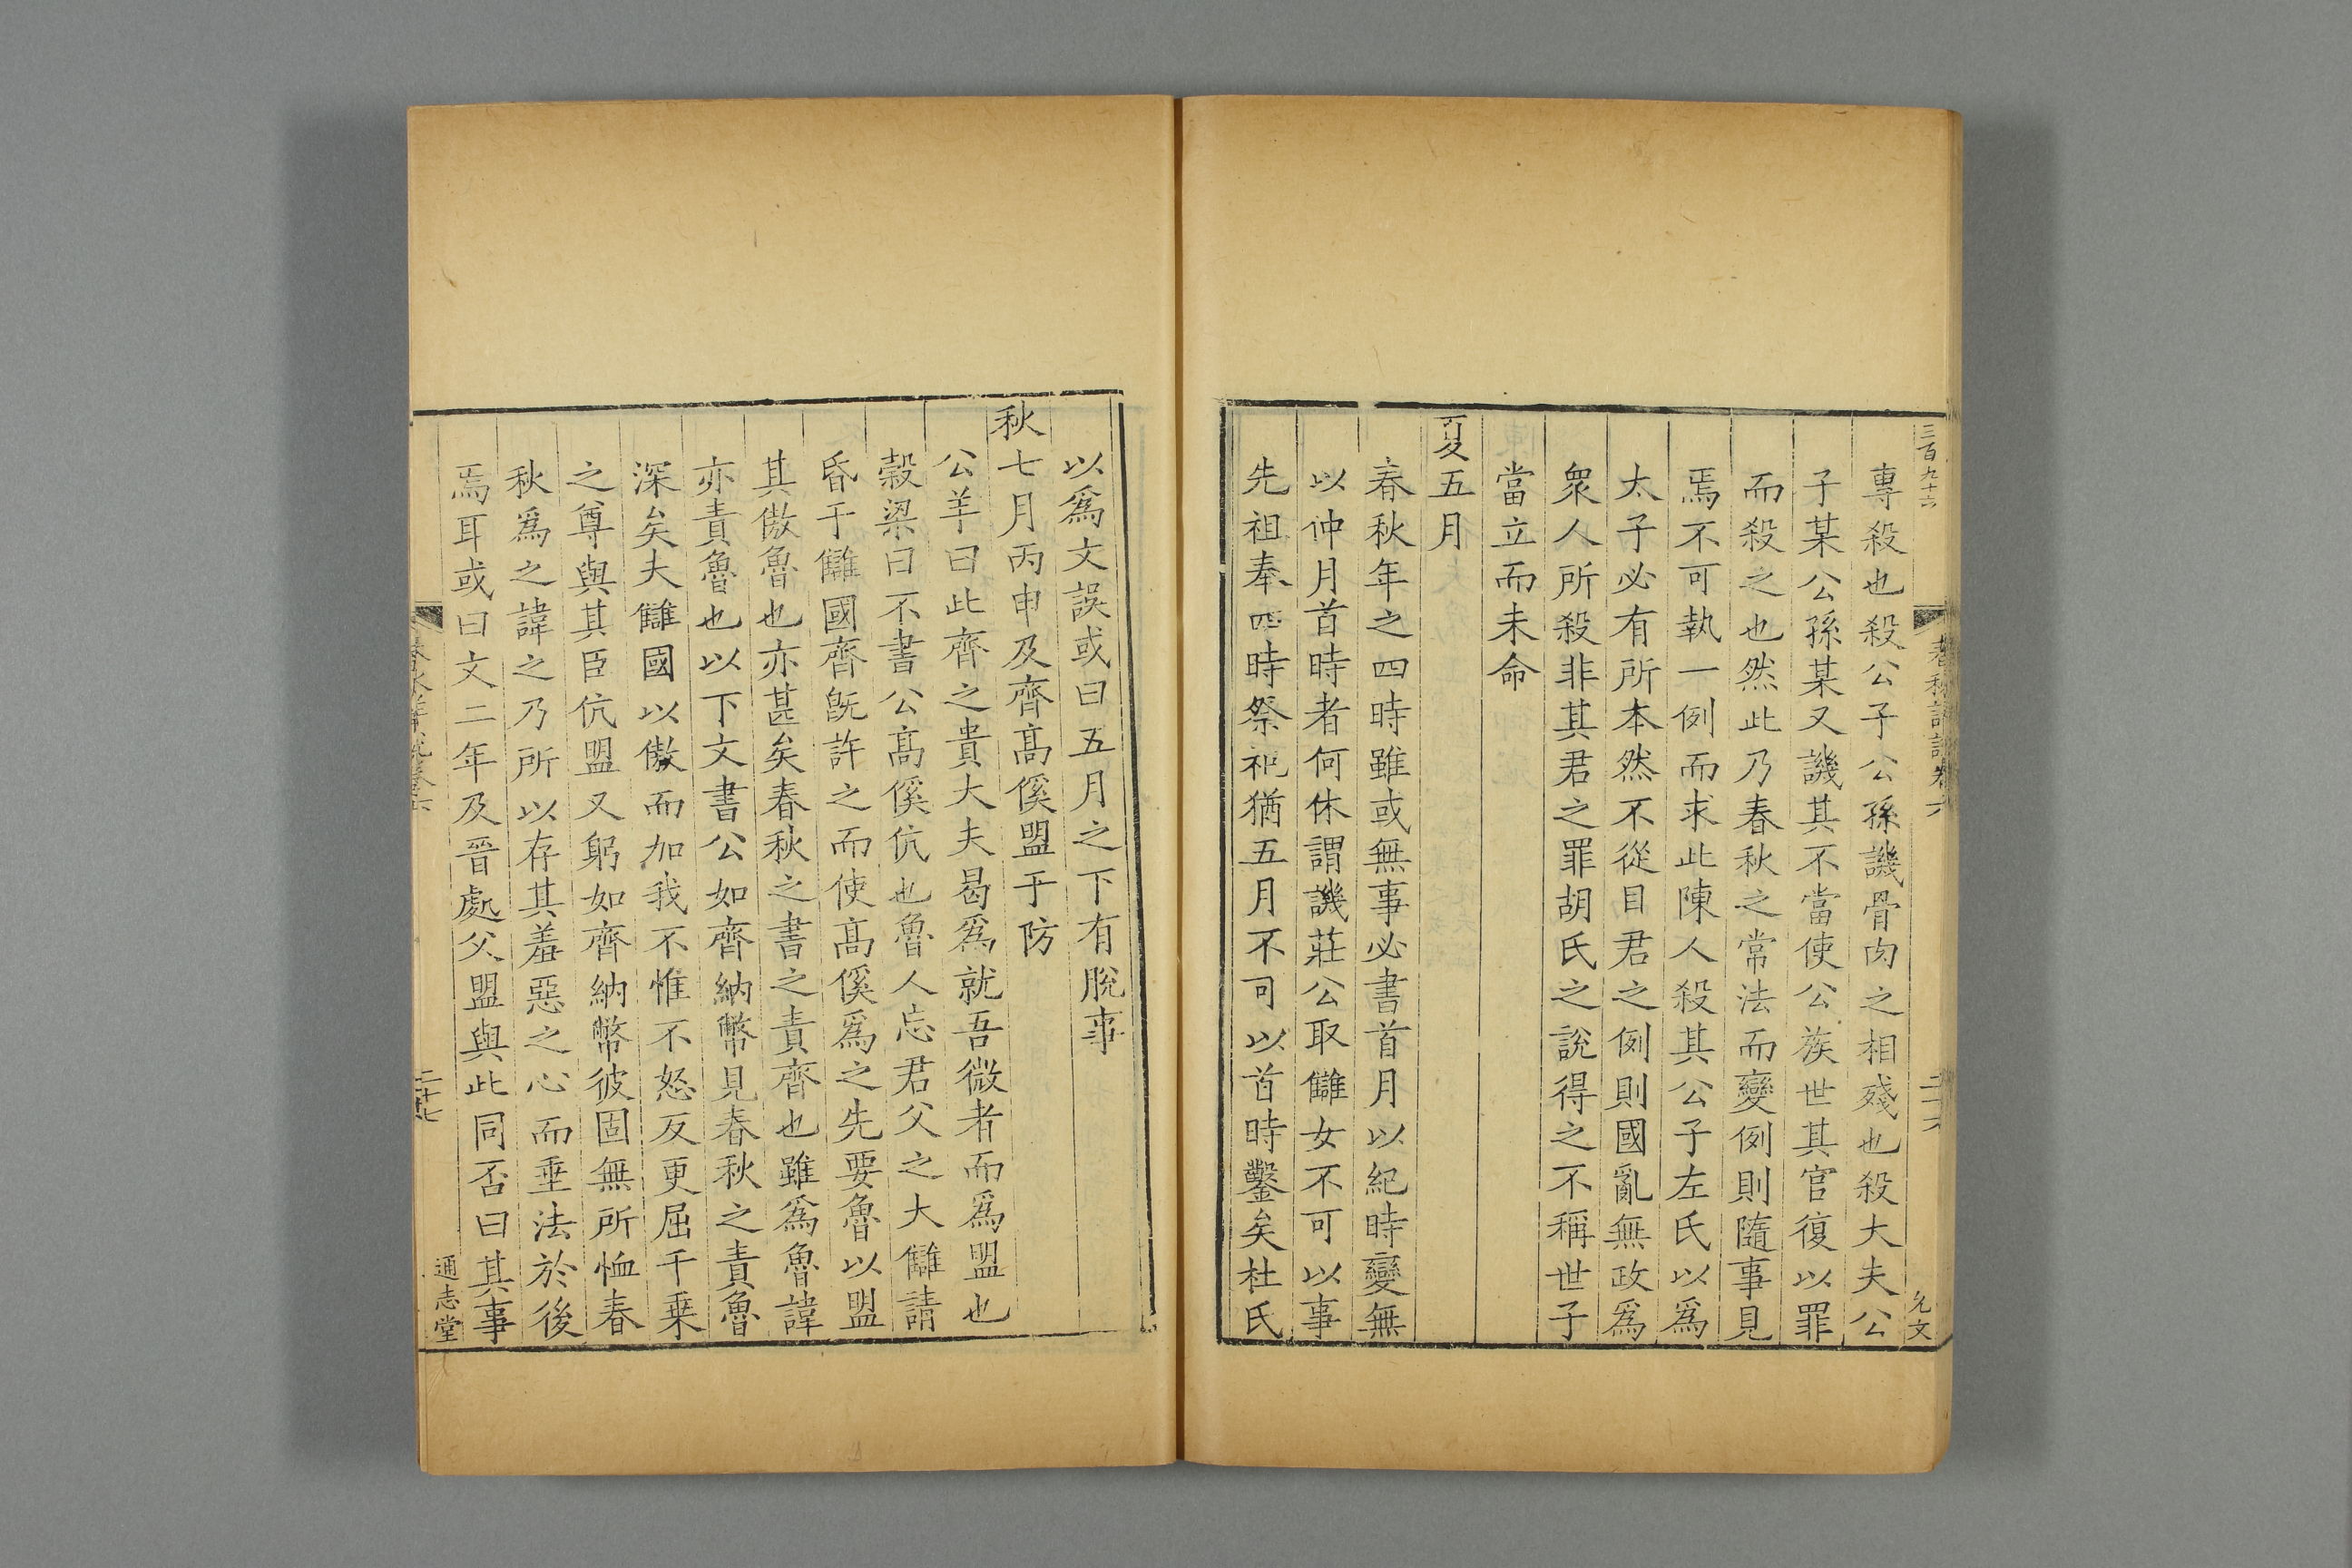 三百九十六
專殺也殺公子公孫譏骨肉之相殘也殺大夫公
子某公孫某又譏其不當使公族世其官復以罪
而殺之也然此乃春秋之常法而變例則隨事見
焉不可執一例而求此陳人殺其公子左氏以爲
太子必有所本然不從目君之例則國亂無政爲
衆人所殺非其君之罪胡氏之說得之不稱世子
當立而未命
夏五月
春秋年之四時雖或無事必書首月以紀時變無
以仲月首時者何休謂譏莊公取讎女不可以事
先祖奉四時祭祀猶五月不可以首時鑿矣杜氏
允文
以爲文誤或曰五月之下有脫事
秋七月丙申及齊高傒盟于防
公羊曰此齊之貴大夫曷爲就吾微者而爲盟也
穀梁曰不書公高傒伉也魯人忘君父之大讎請
昏于讎國齊旣許之而使高傒爲之先要魯以盟
其傲魯也亦甚矣春秋之書之責齊也雖爲魯諱
亦責魯也以下文書公如齊納幣見春秋之責魯
深矣夫讎國以傲而加我不惟不怒反更屈千乗
之尊與其臣伉盟又躬如齊納幣彼固無所恤春
秋爲之諱之乃所以存其羞惡之心而垂法於後
焉耳或曰文二年及晉處父盟與此同否曰其事
通志堂